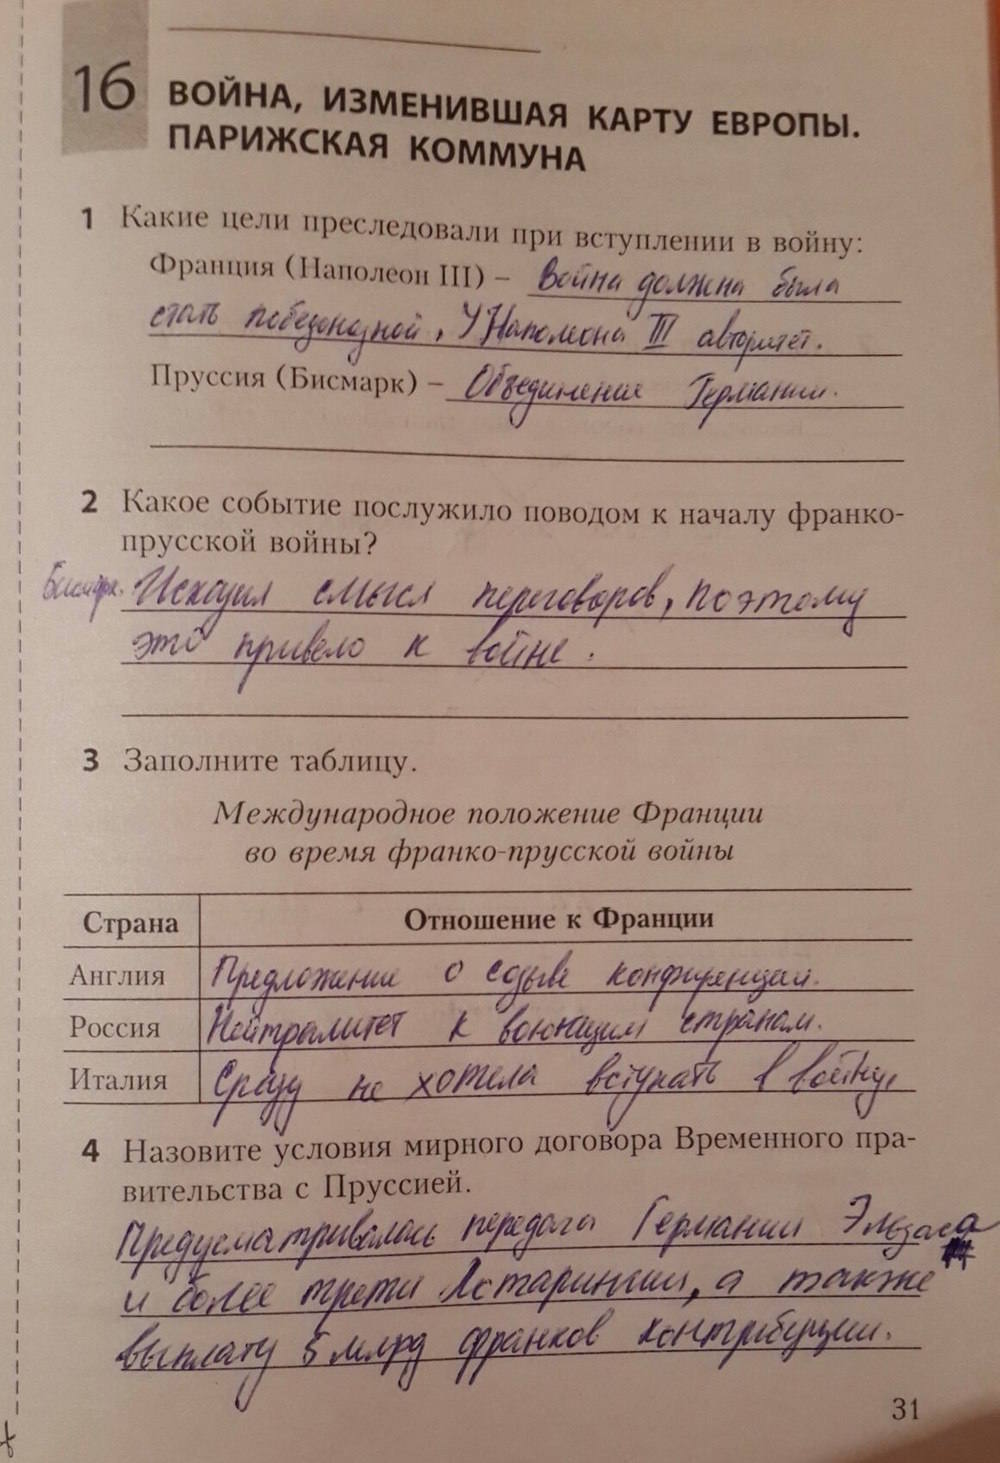 16
ВОЙНА, ИЗМЕНИВШАЯ КАРТУ ЕВРОПЫ.
ПАРИЖСКАЯ КОММУНА
1 Какие цели преследовали при вступлении в войну:
Франция (Наполеон III) – Война должна была
стать победоносной, У Наполеона III авторитет.
Пруссия (Бисмарк) – Объединение Германии.
2 Какое событие послужило поводом к началу франко-
прусской войны?
Бисмарк. Исказил смысл переговоров, поэтому
это привело к войне.
3 Заполните таблицу.
Международное положение Франции
во время франко-прусской войны
Страна Отношение к Франции
Англия Предложение о созыве конференции.
Россия Нейтралитет к воюющим странам.
Италия Сразу не хотела вступать в войну,
4 Назовите условия мирного договора Временного пра-
вительства с Пруссией.
Предусматривалась передача Германии Эльзаса
и более трети Лотарингии, а также
выплату 5 млрд франков контрибуции.
31